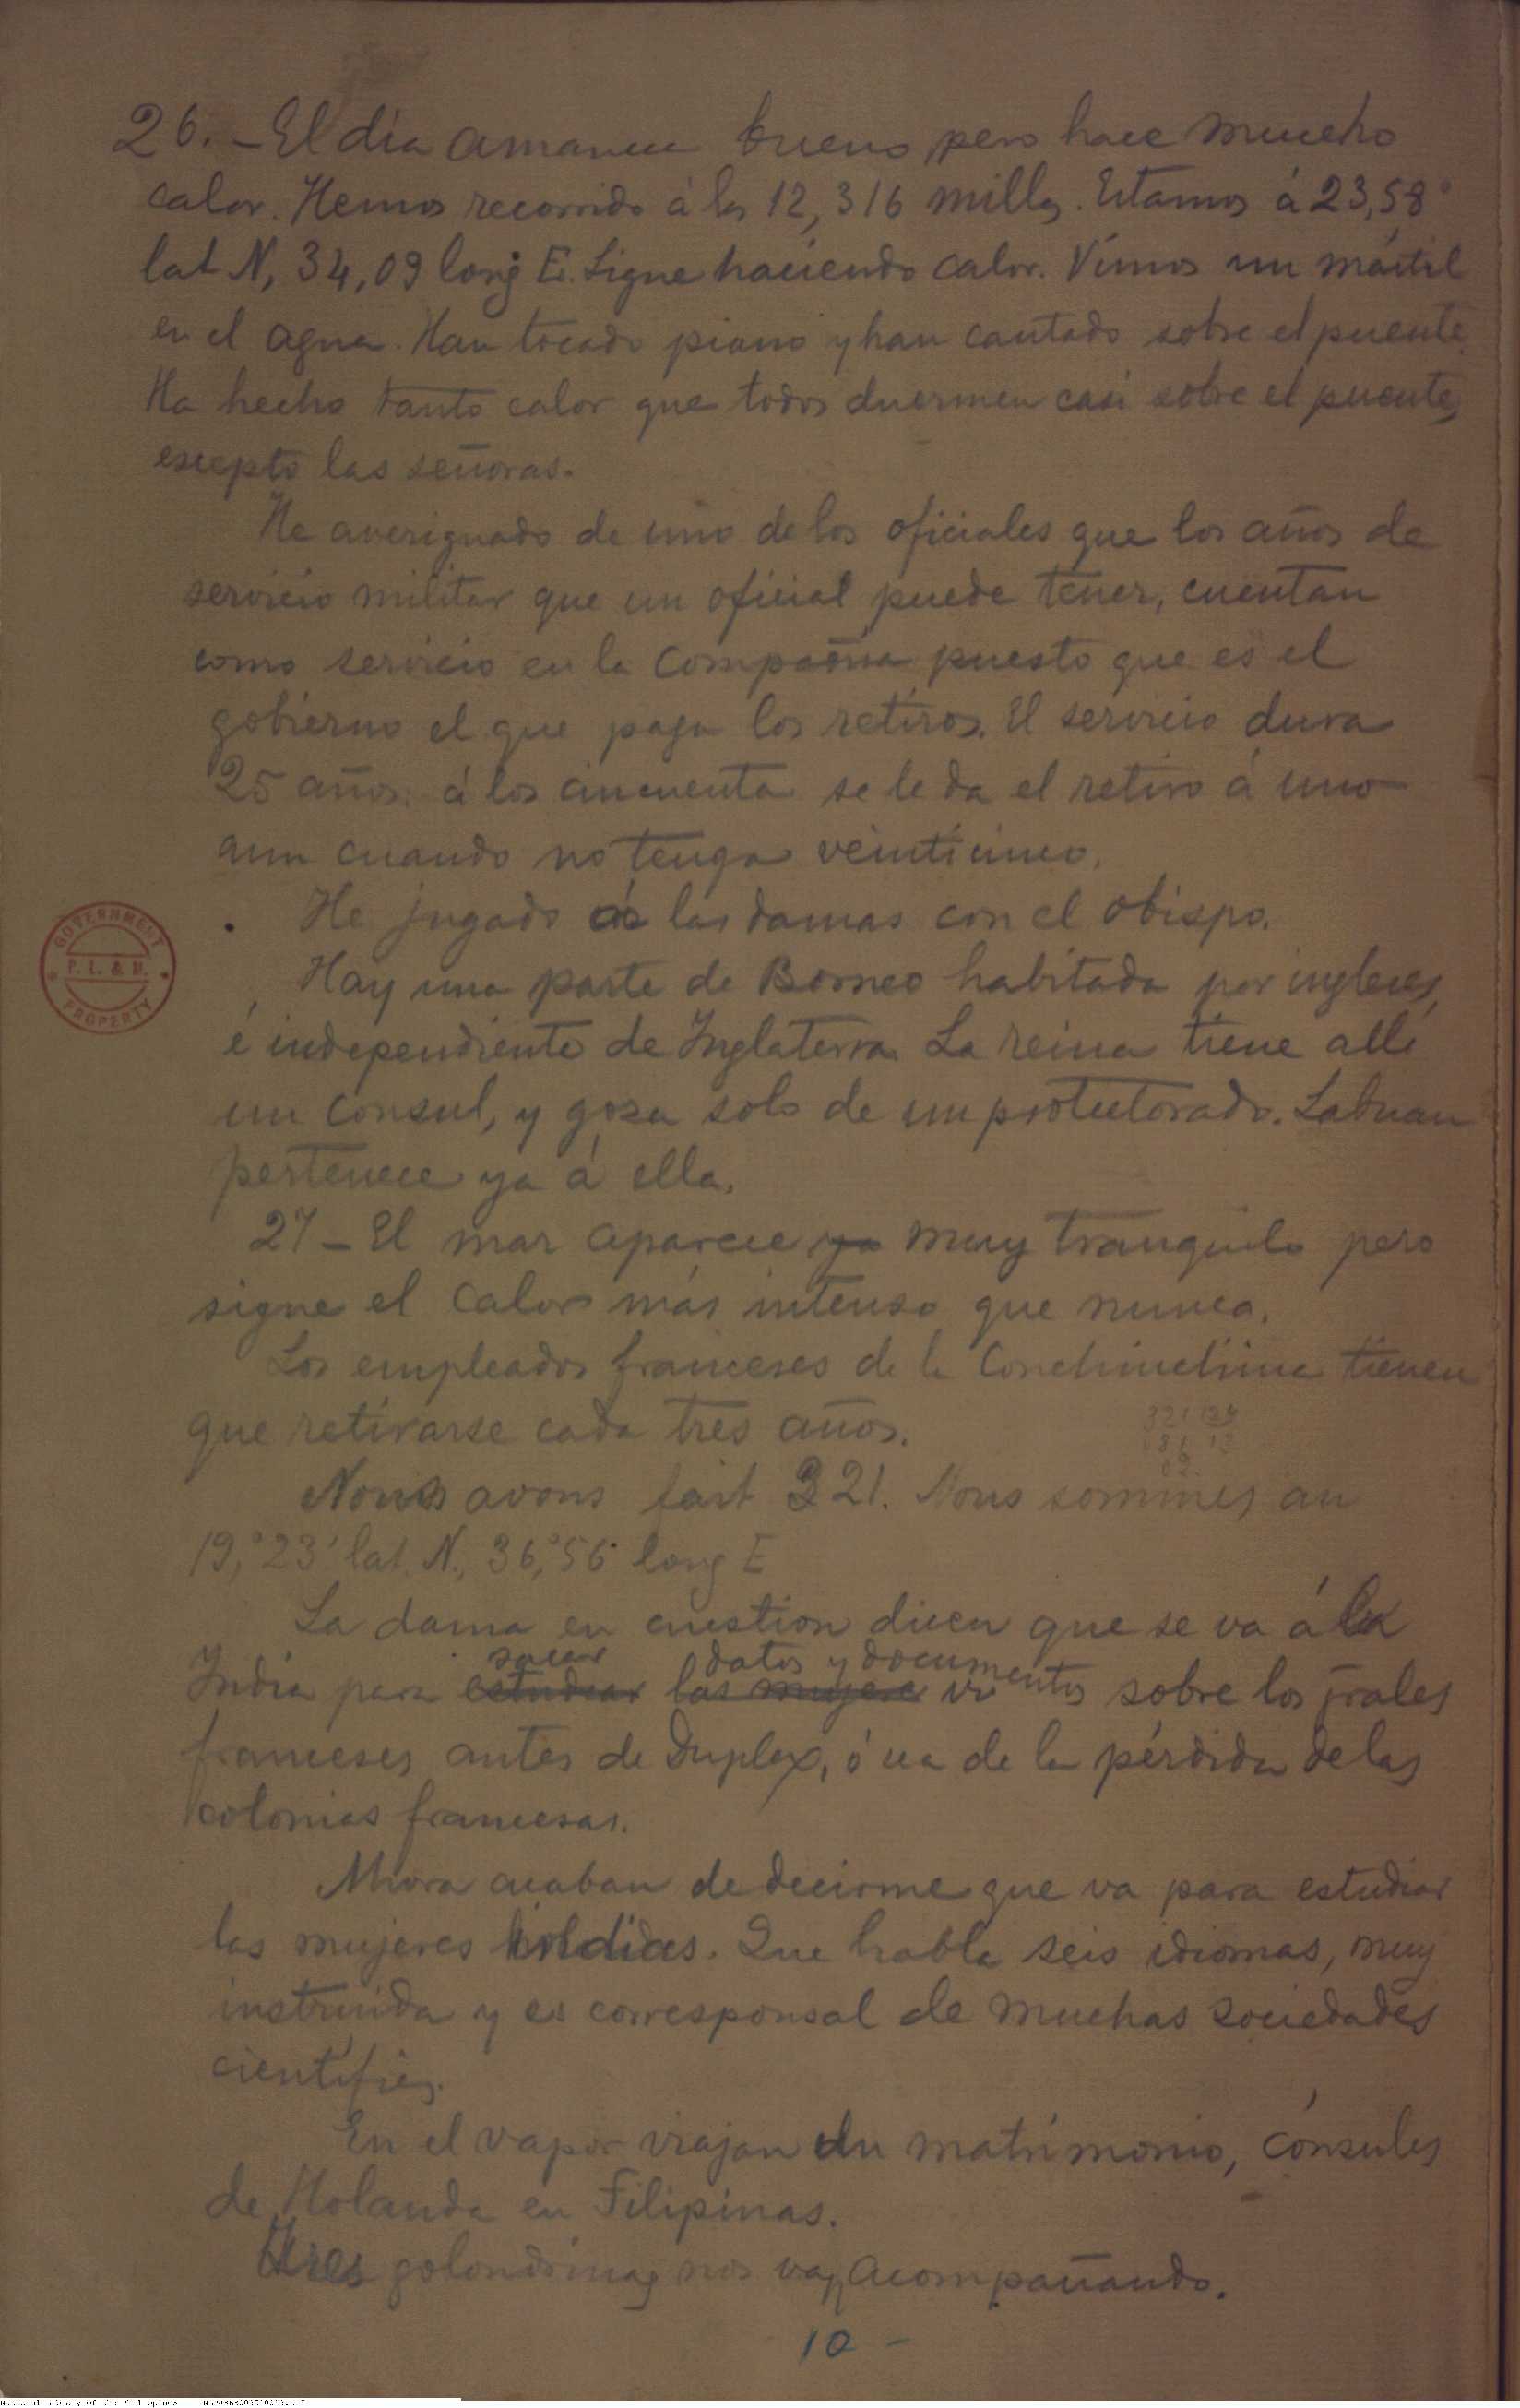 26. – El dia amanece bueno pero hace mucho
calor. Hemos recorrido á las 12, 316 millas. Estamos á 23,58°
lat N, 34,09 long E. Sigue haciendo calor. Vimos un mástil
en el agua. Han tocado piano y han cantado sobre el puente.
Ha hecho tanto calor que todos duermen casi sobre el puente,
escepto las señoras.
He averiguado de uno de los oficiales que los años de
servicio militar que un oficial puede tener, cuentan
como servicio en la Compañia puesto que es el
gobierno el que paga los retiros. El servicio dura
25 años: á los cincuenta se le da el retiro á uno
aun cuando no tenga veinticinco.
He jugado á las damas con el obispo.
Hay una parte de Borneo habitada por ingleses,
é independiente de Inglaterra. La reina tiene allí
un consul, y goza solo de un protectorado. Labuan
pertenece ya á ella.
27 – El mar aparece ya muy tranquilo pero
sigue el calor más intenso que nunca.
Los empleados franceses de la Conchinchina tienen
que retirarse cada tres años.
Nous avons fait 321. Nous sommes au
19,°23' lat. N., 36,°56' long E
La dama en cuestion dicen que se va á la
sacar datos y documentos
India para estudiar las mujere sobre los grales
franceses antes de Duplex, ó sea de la pérdida de las
colonias francesas.
Ahora acaban de decirme que va para estudiar
las mujeres indias. Que habla seis idiomas, muy
instruida y es corresponsal de muchas sociedades
científicas.
En el vapor viajan un matrimonio, cónsules
de Holanda en Filipinas.
Tres golondrinas nos van acompañando.
10 –
GOVERNMENT
P. L. & M.
PROPERTY